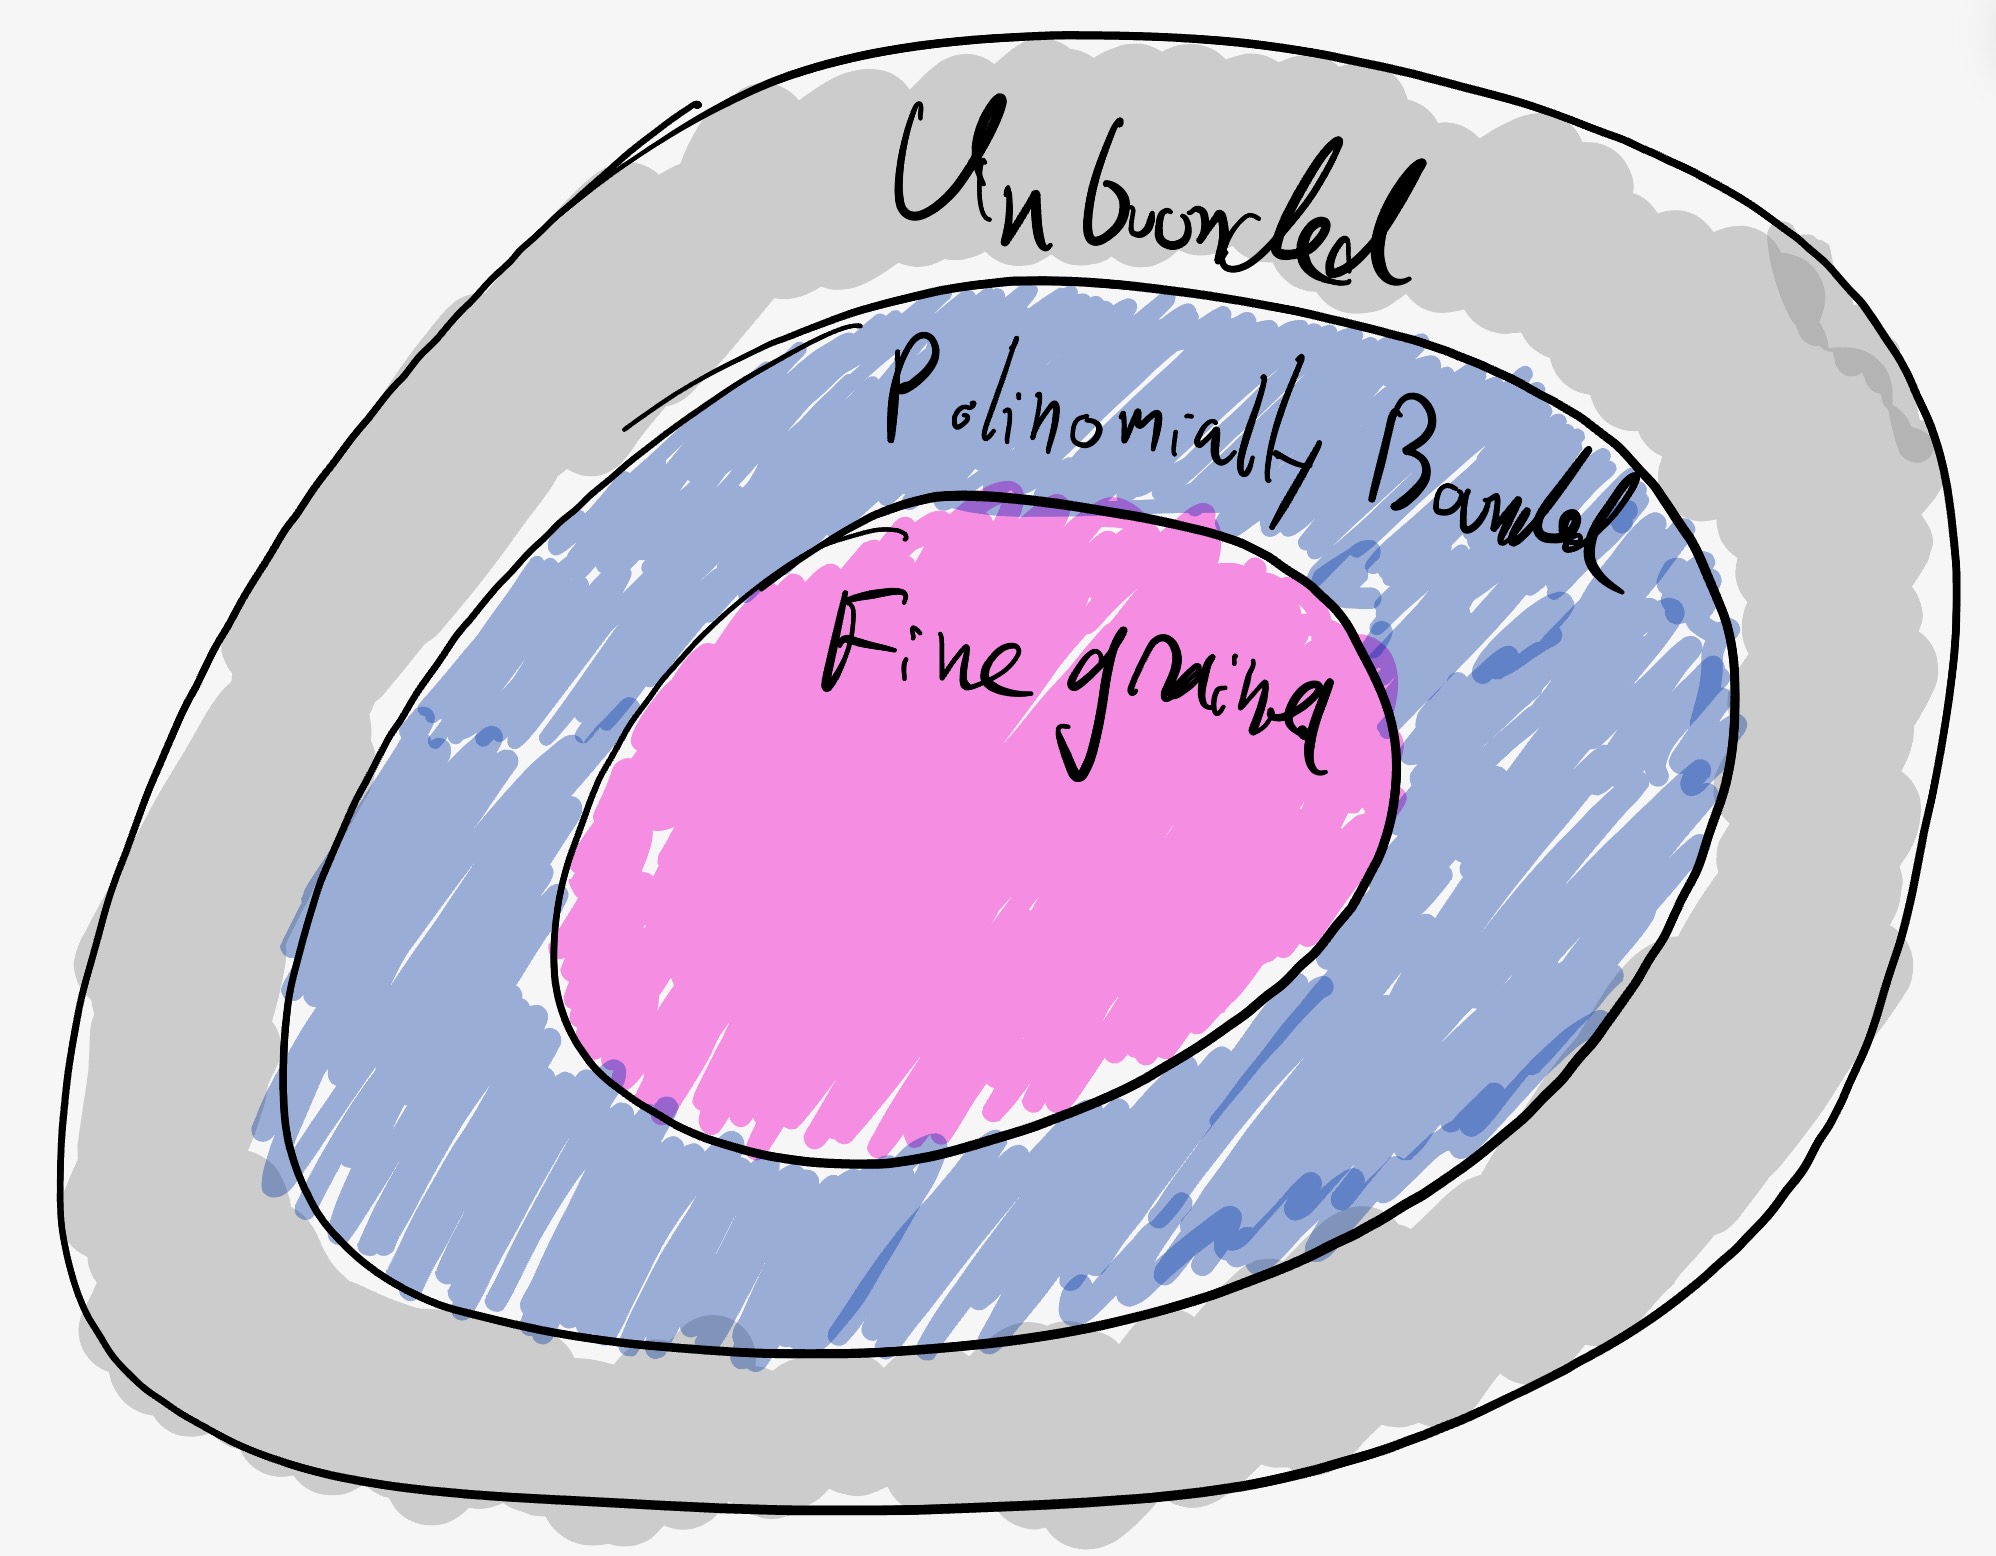 Unbounded
Polinomially Bounded
Fine grained